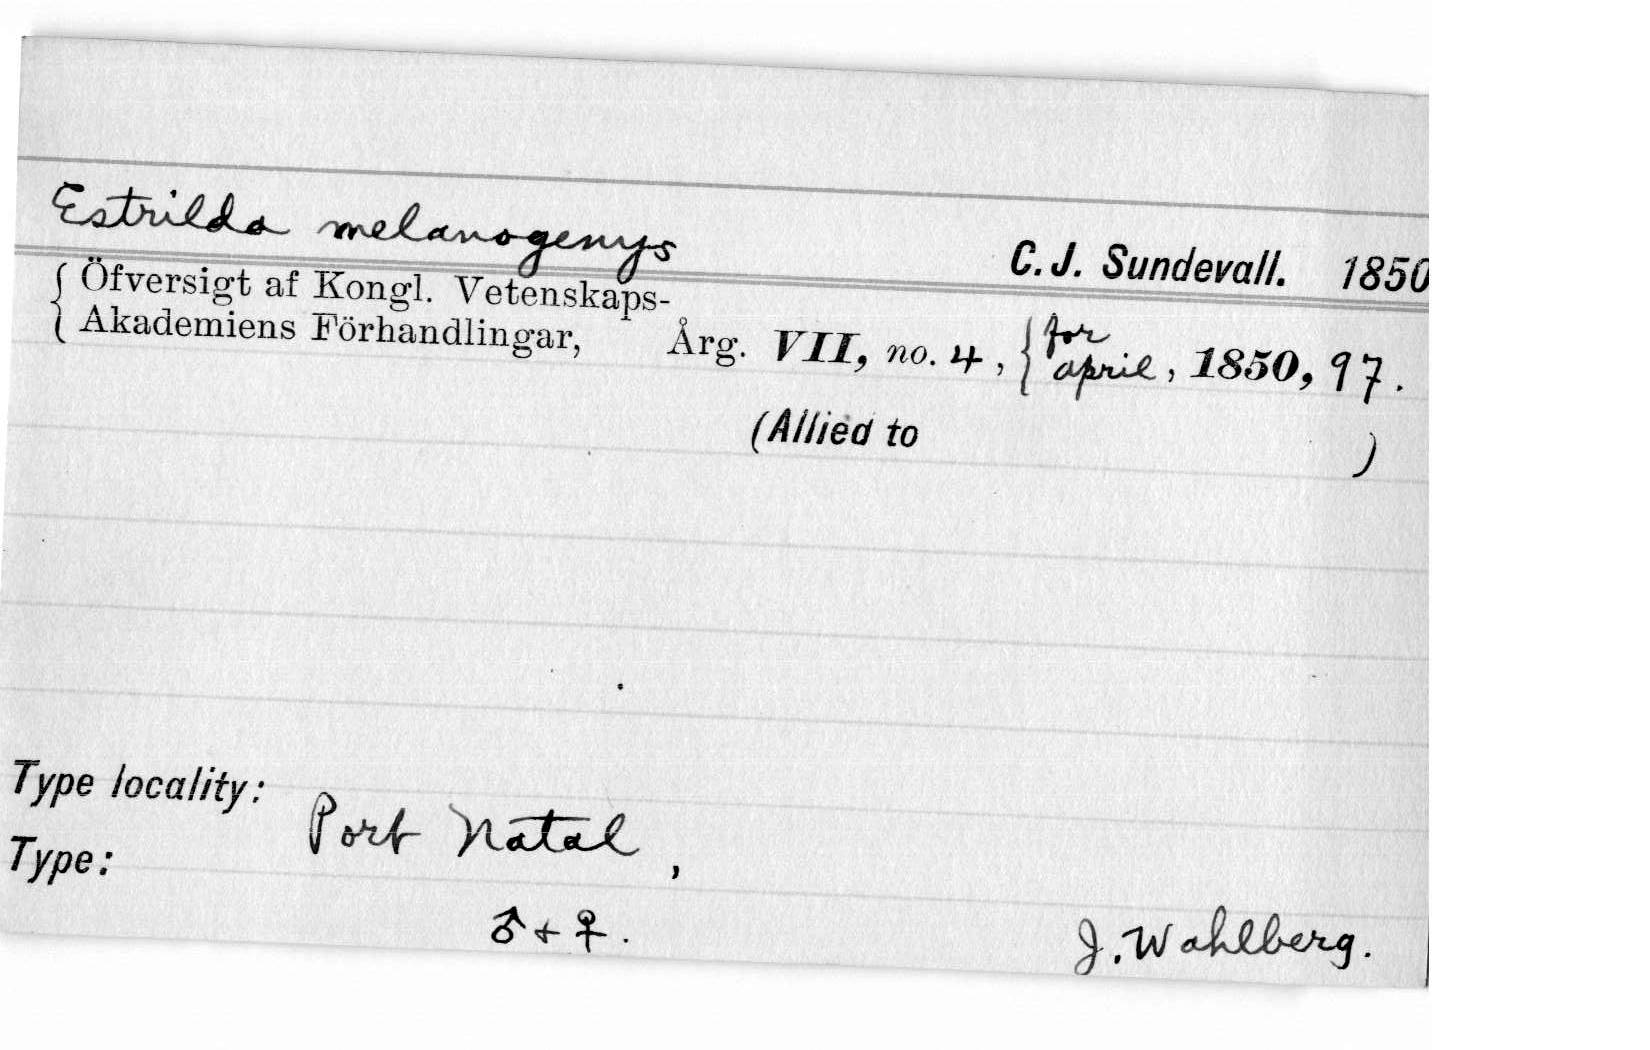 Estrilda melanogenys C. J. Sundevall. 1850
{ Öfversigt af Kongl. Vetenskaps-
{ Akademiens Förhandlingar, Årg. VII, no. 4, { for april, 1850, 97.
(Allied to )
Type locality: Port Natal,
Type: ♂ + ♀. J. Wahlberg.